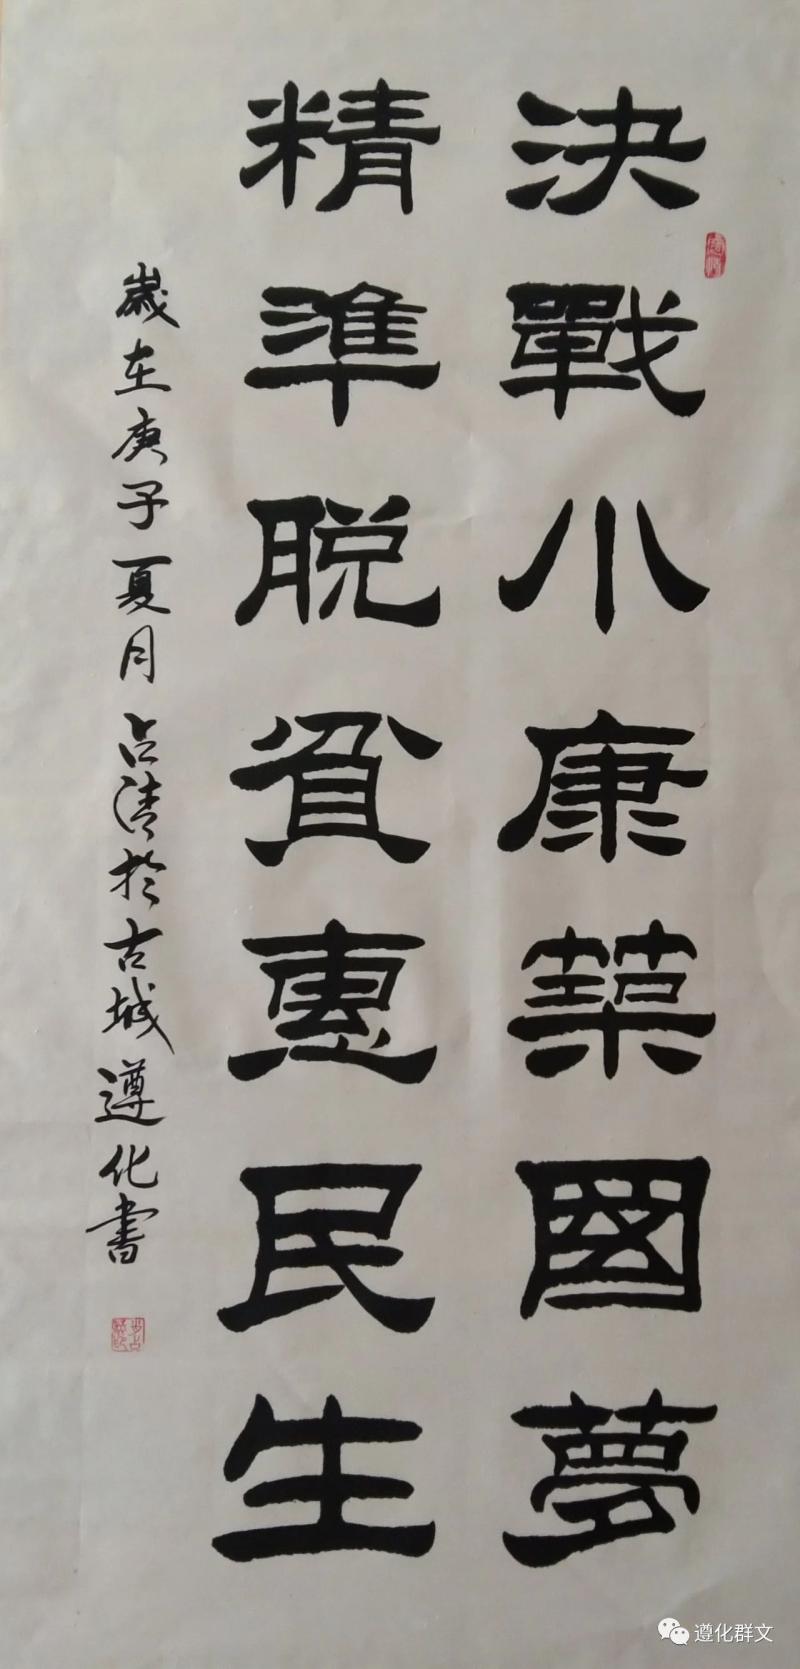 決戰小康築國夢
精準脱貧惠民生
歲在庚子夏月占清於古城遵化書
遵化群文